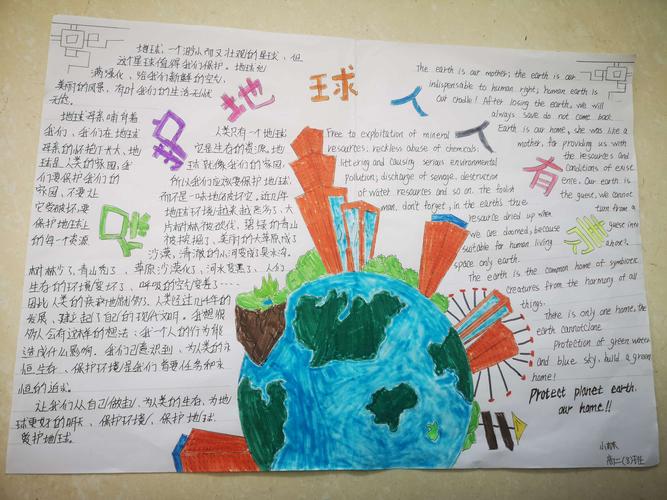 保护地球 人人有责
地球,一个渺小而又壮观的星球,但
这个星球值得我们保护。地球充
满强化,给我们新鲜的空气,
美丽的风景,有时我们的生活无忧
无虑。
地球母亲哺育着
我们,我们在地球
母亲的怀抱下长大、地
球是人类的家园,我
们要保护我们的
家园,不要让
它受破坏,要
保护地球上
的每一个资源
人类只有一个地球
它是生命的资源,地
球就像我们的家园,
所以我们应该要保护地球,
而不是一味地破坏它,近几年
地球环境越来越恶劣了,大
片树林被砍伐、碧绿的青山
被挖掘了、美丽的大草原成了
沙漠,清澈的小河变成臭水沟。
树林少了,青山秃了、草原沙漠化了,河水发黑了、人们
生存的环境变坏了、呼吸的空气变差了……
因此,人类的疾病也就份了、人类经过几十年的
发展、球起了自己的现代文明。我想很
多人会有这样的想法:我一个人的行为能
造成什么影响。我们已意识到、为人类的永
恒生存、保护环境是我们首要任务和永
恒的追求。
让我们从自己做起,为人类的生存、为地
球更好的明天、保护环境、保护地球、
爱护地球。
The earth is our mother; the earth is our
indispensable to human right; human earth is
our cradle! After losing the earth, we will
always save do not come back.
Earth is our home, she was like a
mother, for providing us with
the resources and
conditions of exist
ence. Our earth is
the guest, we cannot
turn from a
guest into
a host?
Free to exploitation of mineral
resources, reckless abuse of chemicals;
littering and causing serious environmental
pollution; discharge of sewage, destruction
of water resources and so on. The foolish
man, don't forget, in the earth's true
resource dried up when
we are doomed, because
suitable for human living
space only earth.
The earth is the common home of symbiotic
creatures from the harmony of all
things.
there is only one home, the
earth cannotclone.
Protection of green water
and blue sky, build a green
home!
Protect planet earth.
our home!!
高二(3)班